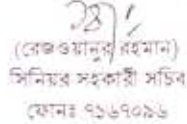 (রেজওয়ানুর রহমান)
সিনিয়র সহকারী সচিব
ফোনঃ ৭১৬৭০৯৬